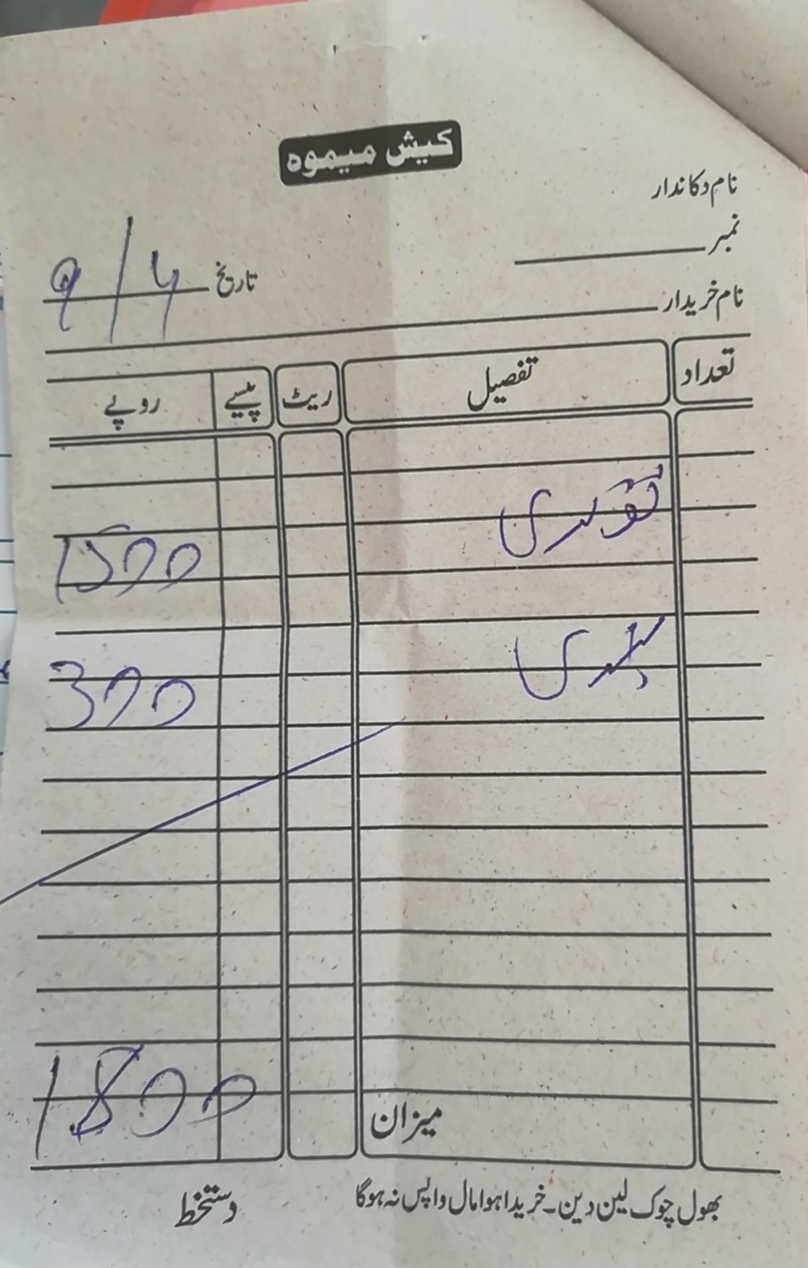 کیش میموہ
نام دکاندار
نمبر
تاریخ 9/4
نام خریدار
تعداد تفصیل ریٹ پیسے روپے
توری 1500
300
میزان 1800
بھول چوک لین دین۔خریدا ہوا مال واپس نہ ہوگا
دستخط